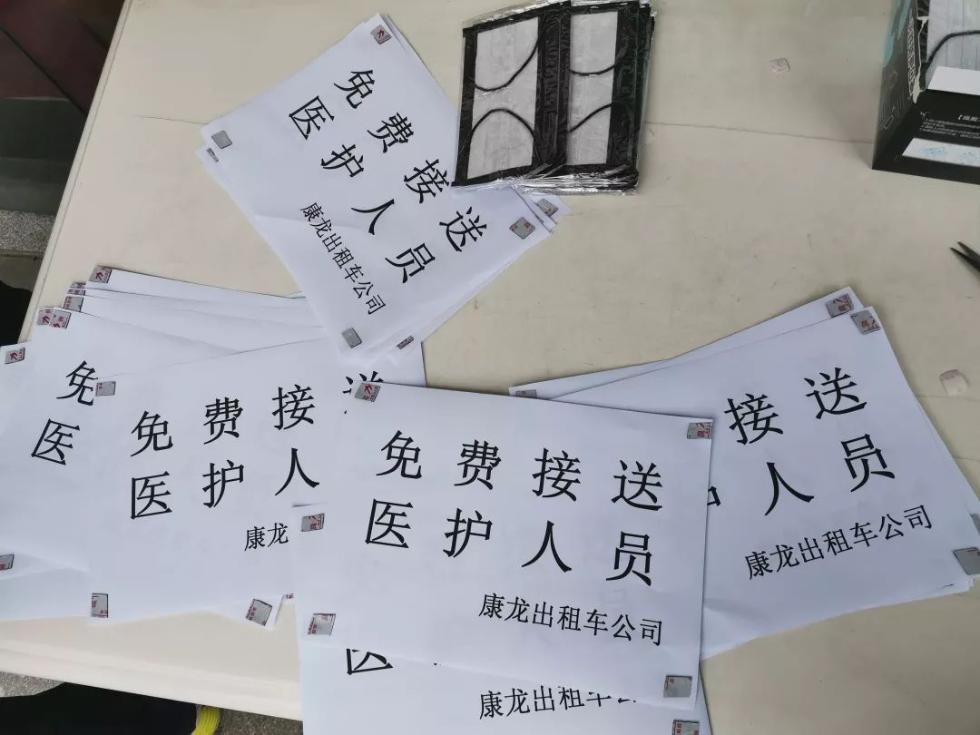 免费接送
医护人员
康龙出租车公司
免
医
免费接送
医护人
康龙
免费接送
医护人员
康龙出租车公司
接送
人员
康龙出租车公司
医
康龙出租车